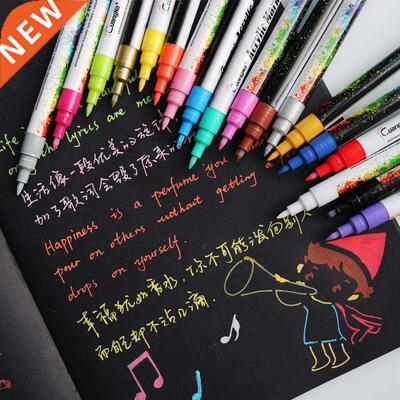 NEW
Guangna
Acrylic Marker
Life is
lyrics are me
生活像一段优美的旋
加了歌词会
Happiness is a perfume you
pour on others without getting
drops on yourself.
幸福犹如香水，你不可能泼向别人
而自己却不沾几滴